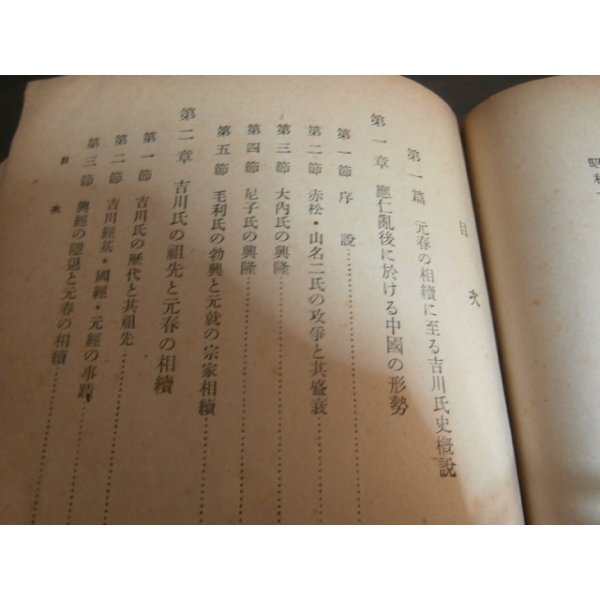 昭和
目次
第一篇 元春の相續に至る吉川氏史概說
第一章 應仁亂後に於ける中國の形勢
第一節 序說
第二節 赤松・山名二氏の攻爭と其盛衰
第三節 大內氏の興隆
第四節 尼子氏の興隆
第五節 毛利氏の勃興と元就の宗家相續
第二章 吉川氏の祖先と元春の相續
第一節 吉川氏の歷代と其祖先
第二節 吉川經基・國經・元經の事蹟
第三節 興經の隱退と元春の相續
目次